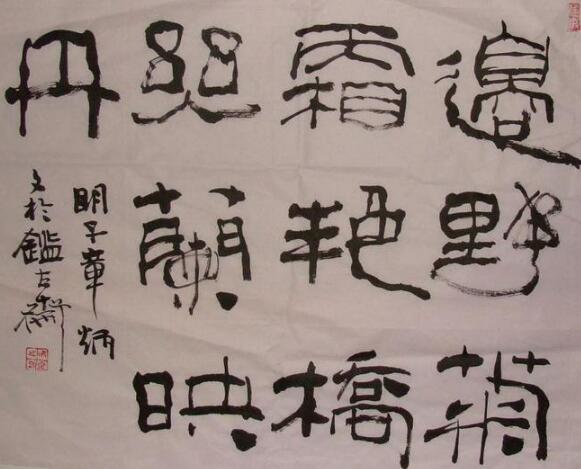 邊野菊
霜艳橋
蘭映
丹
明子章炳
文於鑑古齋